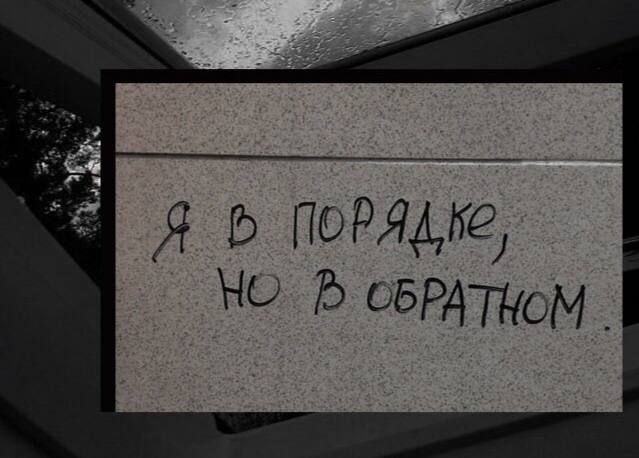 Я В ПОРЯДКЕ,
НО В ОБРАТНОМ.